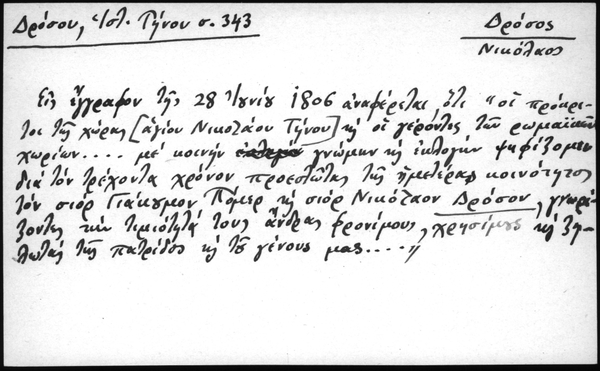 Δρόσου, Ἱστ. Τήνου σ. 343
Δρόσος
Νικόλαος
Εἰς ἔγγραφον τῆς 28 Ἰουνίου 1806 ἀναφέρεται ὅτι "οἱ πρόκρι-
τοι τῆς χώρας [ἁγίου Νικολάου Τήνου] κὴ οἱ γέροντες τῶν ρωμαϊκῶν
χωρίων.... μὲ κοινὴν γνώμην κὴ ἐκλογὴν ψηφίζομεν
διὰ τὸν τρέχοντα χρόνον προεστῶτας τῆς ἡμετέρας κοινότητος
τὸν σιὸρ Γιάκουμον Πόμερ κὴ σιὸρ Νικόλαον Δρόσον, γνωρί-
ζοντες τὴν τιμιότητά τους ἄνδρας φρονίμους, χρησίμους κὴ ζη-
λωτὰς τῆς πατρίδος κὴ τοῦ γένους μας....."